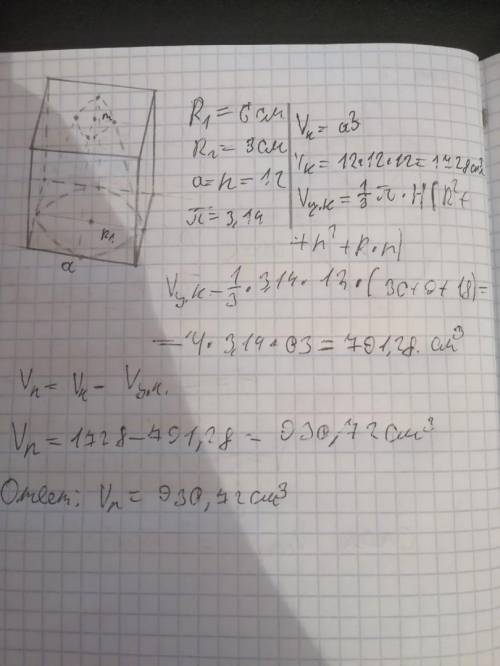 R₁ = 6 см
R₂ = 3 см
a = h = 12
π = 3,14
Vк = a³
Vк = 12·12·12 = 1728 см³
Vу.к = 1/3 π · H (R² +
+ r² + R · r)
R₁
a
Vу.к = 1/3 · 3,14 · 12 · (36 + 9 + 18) =
= 4 · 3,14 · 63 = 791,28 см³
Vп = Vк - Vу.к.
Vп = 1728 - 791,28 = 936,72 см³
Ответ: Vп = 936,72 см³